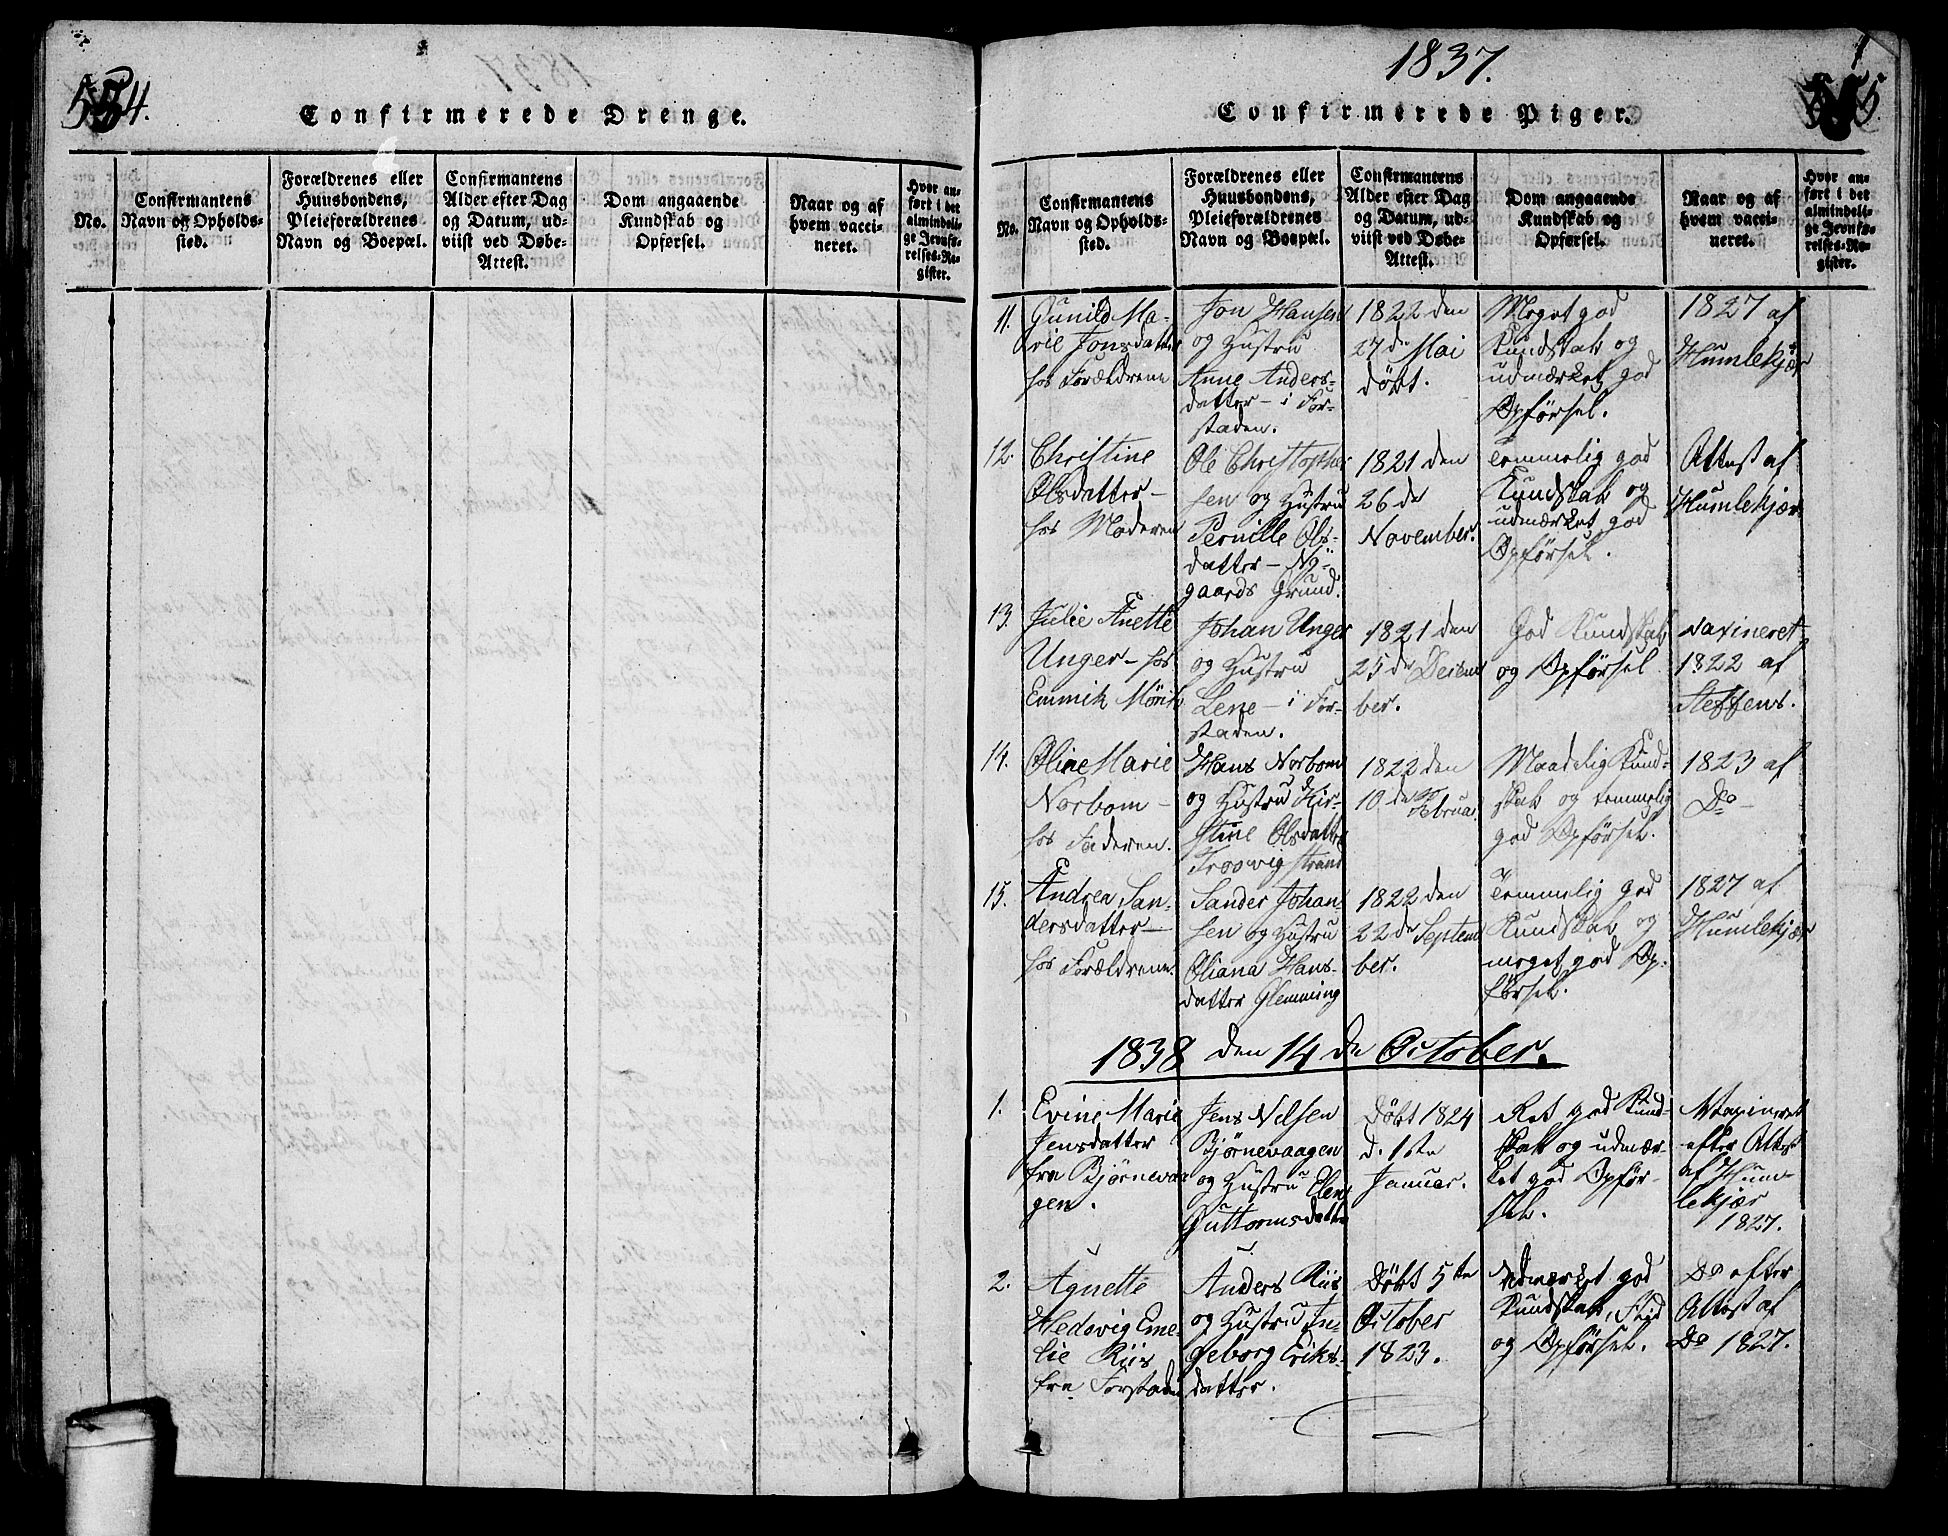 554.
Confirmerede Drenge.
No.
Confirmantens
Navn og Opholds-
sted.
Forældrenes eller
Huusbondens,
Pleieforældrenes
Navn og Boepæl.
Confirmantens
Alder efter Dag
og Datum, ud-
viist ved Døbe-
Attest.
Dom angaaende
Kundskab og
Opførsel.
Naar og af
hvem vacci-
neret.
Hvor an-
ført i det
almindeli-
ge Jevnfø-
relses-Re-
gister.
1837.
Confirmerede Piger.
No.
Confirmantens
Navn og Opholds-
sted.
Forældrenes eller
Huusbondens,
Pleieforældrenes
Navn og Boepæl.
Confirmantens
Alder efter Dag
og Datum, ud-
viist ved Døbe-
Attest.
Dom angaaende
Kundskab og
Opførsel.
Naar og af
hvem vacci-
neret.
Hvor an-
ført i det
almindeli-
ge Jevnfø-
relses-Re-
gister.
11.
Gunild Ma-
rie Jonsdatter
hos Forældrene
Jon Hansen
og Hustru
Anne Anders-
datter - i For-
staden.
1822 den
27de Mai
döbt.
Meget god
Kundskab og
udmærket god
Opførsel.
1827 af
Humlekjær
12.
Christine
Olsdatter -
hos Moderen
Ole Christopher
sen og Hustru
Pernille Ols-
datter - Ny-
gaards Grund.
1821 den
26de
November.
Temmelig god
Kundskab og
udmærket god
Opførsel.
Attest af
Humlekjær
13.
Julie Anette
Unger - hos
Emmik
Johan Unger
og Hustru
Lene - i For-
staden.
1821 den
25de Decem
ber.
God Kundskab
og Opførsel
vaxineret
1822 af
Steffens.
14.
Oline Marie
Norbom -
hos Faderen.
Hans Norbom
og Hustru Kir-
stine Olsdatter
strand
1822 den
10de Februar.
Maadelig Kund-
skab og temmelig
god Opførsel.
1823 af
Do -
15.
Andrea San-
dersdatter -
hos Forældrene.
Sander Johan-
sen og Hustru
Oliana Hans-
datter Glemming
1822 den
22de Septem
ber.
Temmelig god
Kundskab og
meget god Op-
førsel.
1827 af
Humlekjær
1838 den 14de October.
1.
Evine Marie
Jensdatter
fra Bjørnevaa
gen.
Jens Nelsen
Bjørnevaagen
og Hustru Elen
Guttormsdatter
Döbt 1824
d. 1ste
Januar.
Ret god Kund-
skab og udmær-
ket god Opfør-
sel.
Vaxineret
efter Attest
af Hum-
lekjær
1827.
2.
Agnette
Hedevig Eme-
lie Riis
fra Forstaden
Anders Riis
og Hustru In-
geborg Eriks-
datter.
Döbt 5te
October
1823.
Udmærket god
Kundskab, Flid
og Opførsel.
Do efter
Attest af
Do 1827.